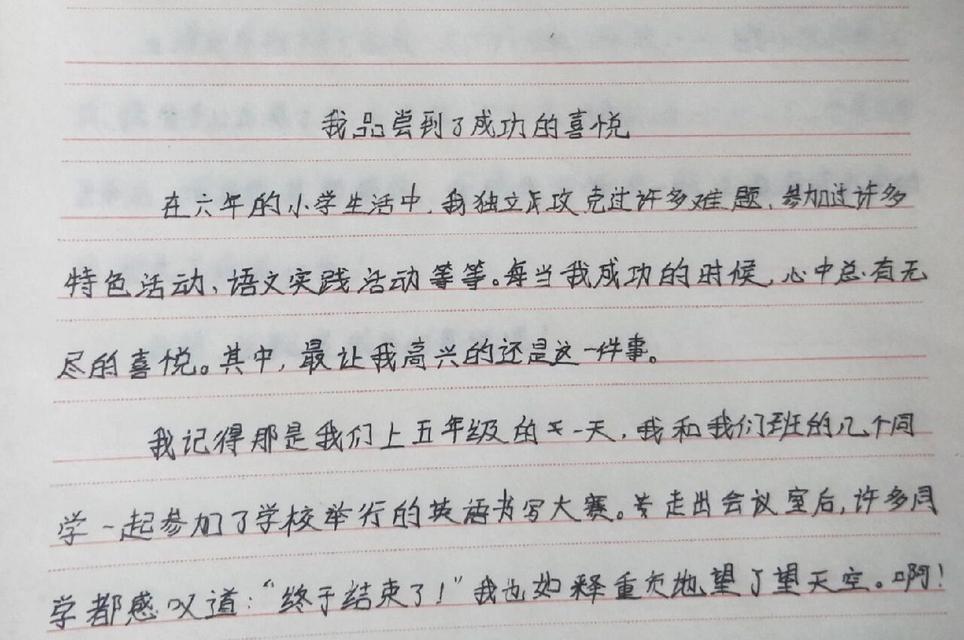 我品尝到了成功的喜悦
在六年的小学生活中,我独立攻克过许多难题,参加过许多
特色活动、语文实践活动等等。每当我成功的时候,心中总有无
尽的喜悦。其中,最让我高兴的还是这一件事。
我记得那是我们上五年级的一天,我和我们班的几个同
学一起参加了学校举行的英语书写大赛。走出会议室后,许多同
学都感叹道:“终于结束了!”我也如释重负地望了望天空。啊!